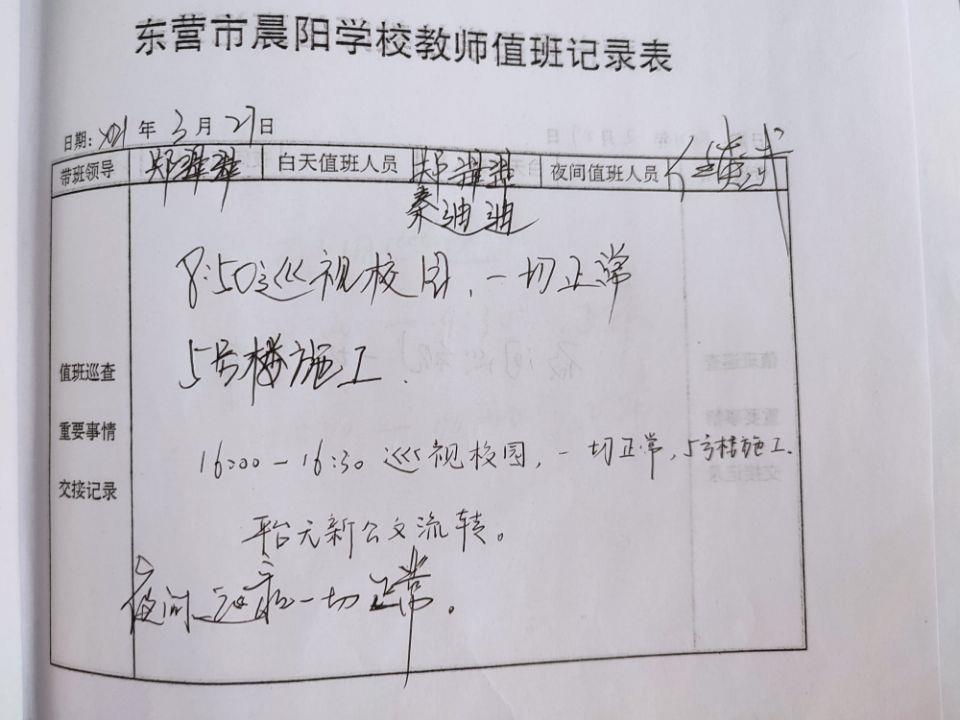 东营市晨阳学校教师值班记录表
日期: 2021 年 3 月 27 日
带班领导 郑翠翠 白天值班人员 郑翠翠 夜间值班人员
秦迪迪
8:50巡视校园,一切正常
5号楼施工.
值班巡查
重要事情
交接记录
16:00-16:30 巡视校园,一切正常,5号楼施工.
平台无新公文流转。
夜间 一切正常。